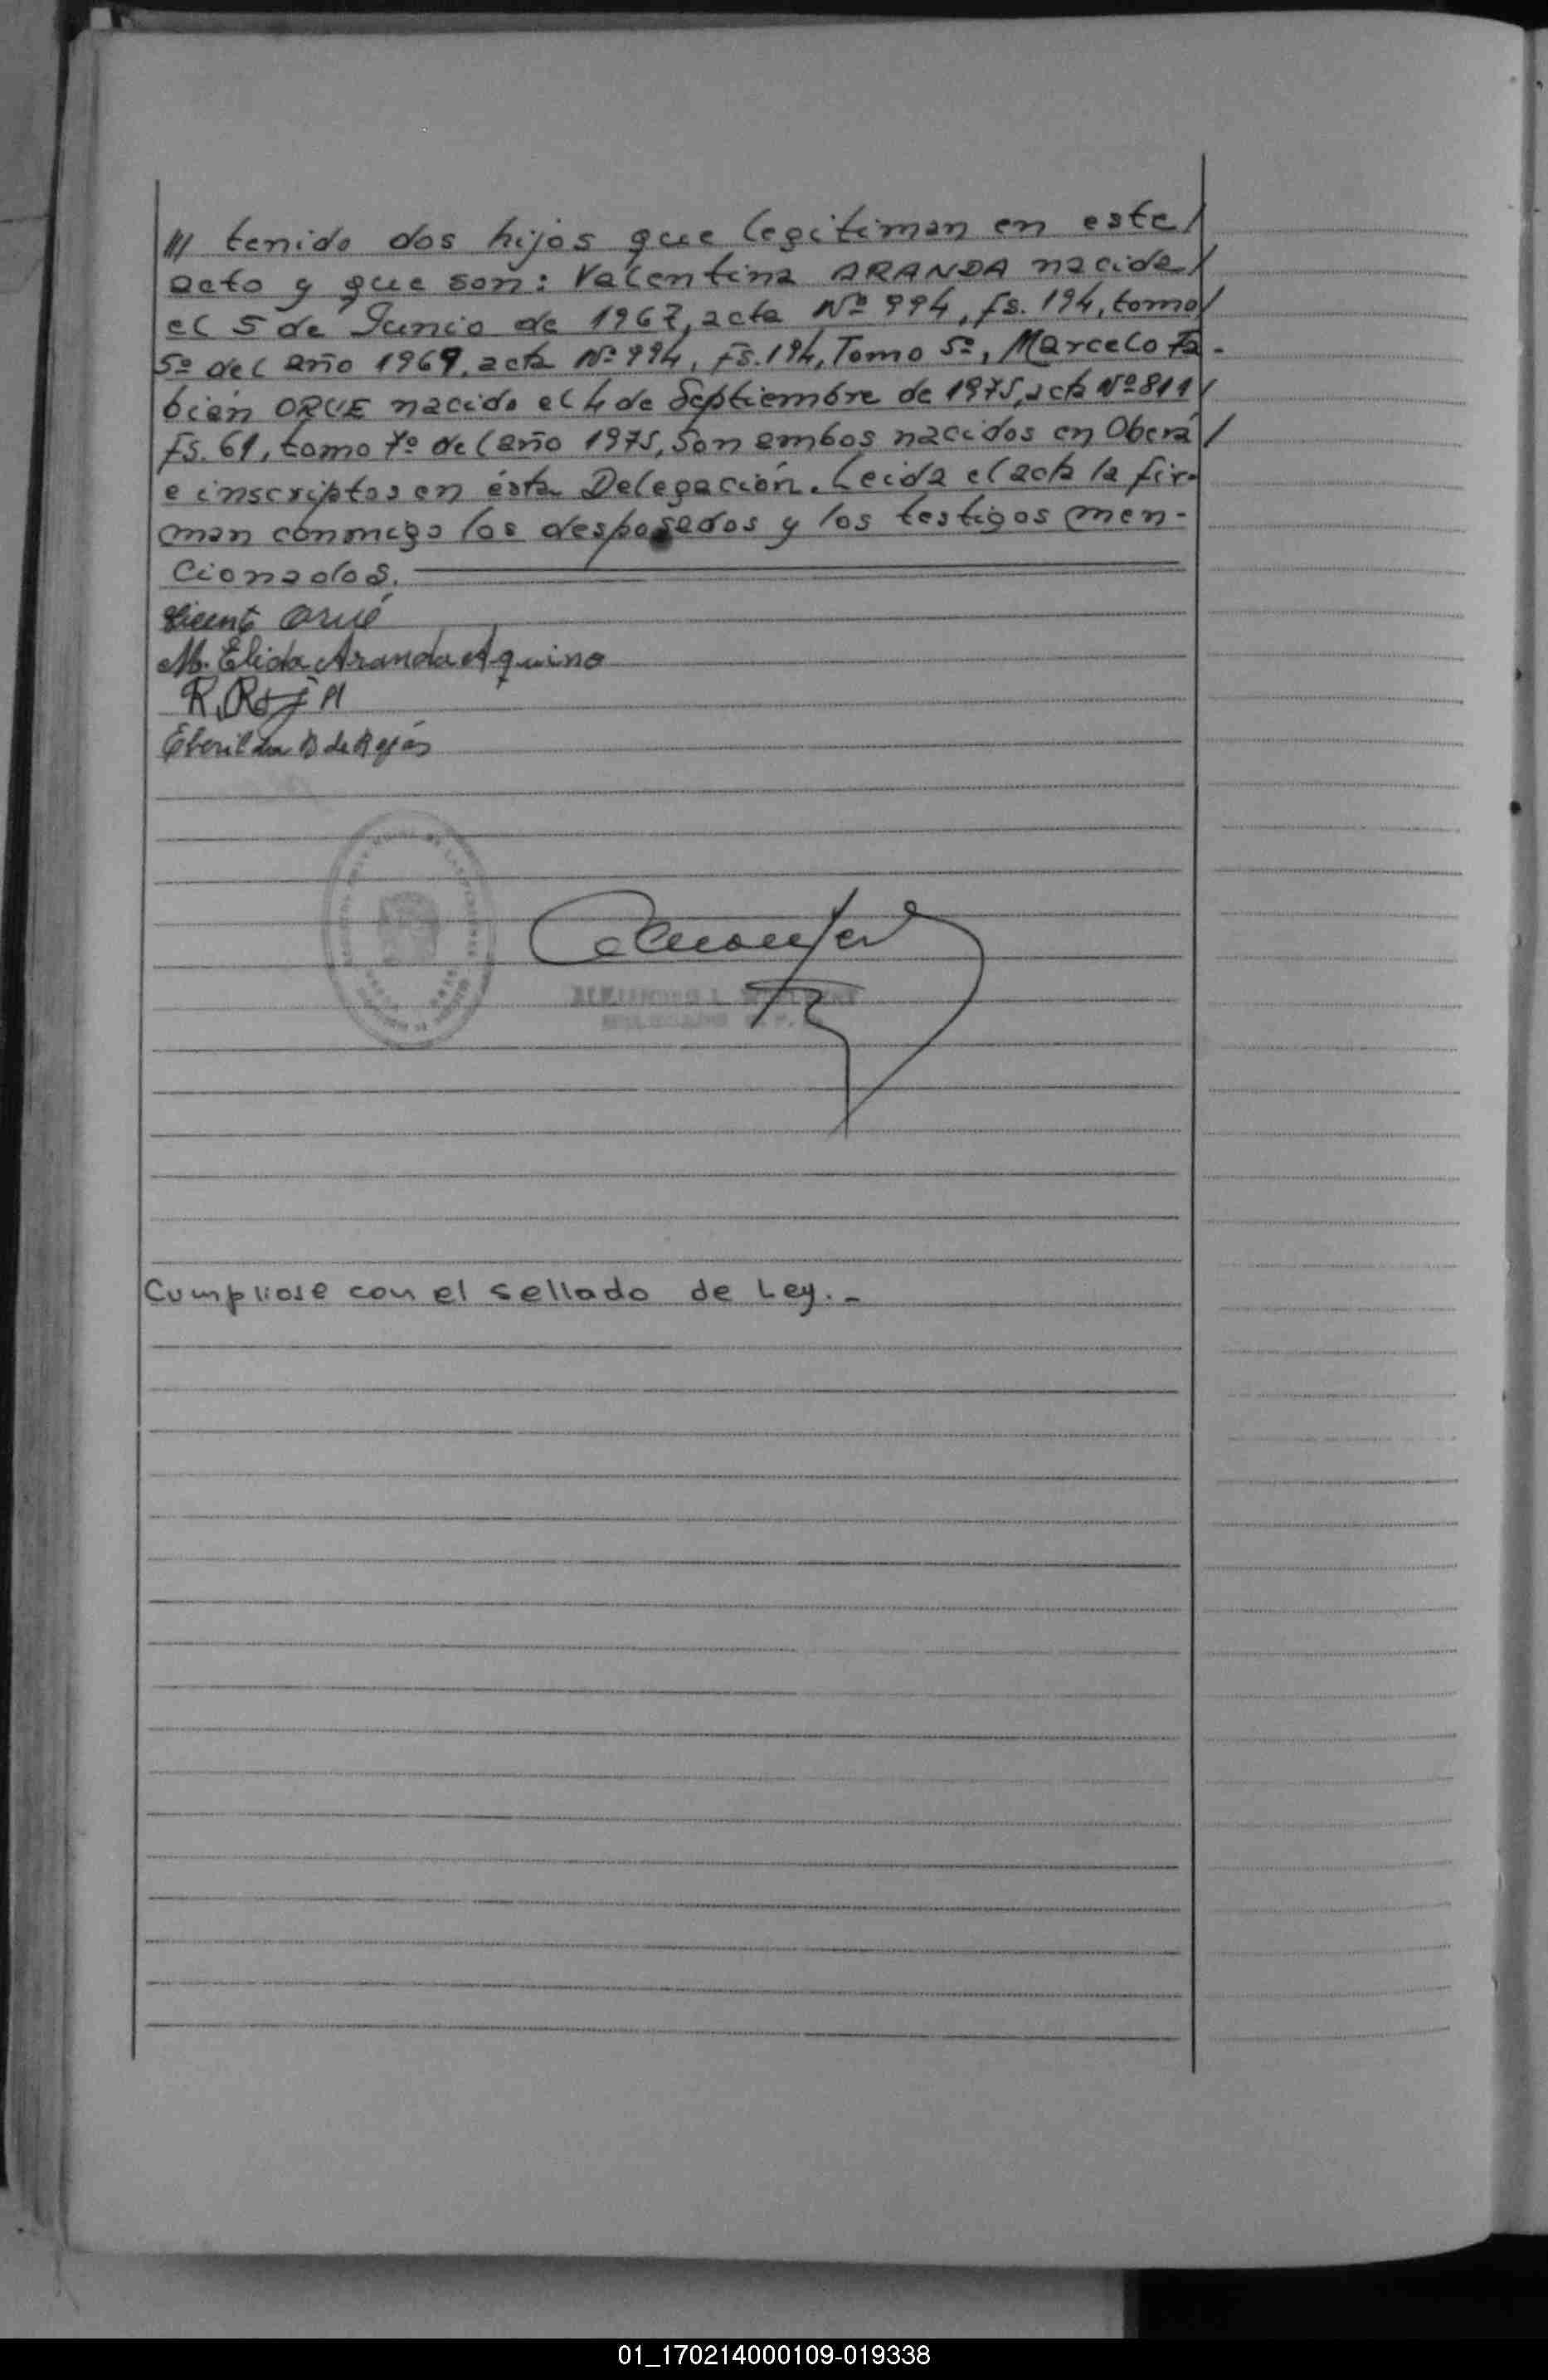 /// tenido dos hijos que legitiman en este/
acto y que son: Valentina ARANDA nacida/
el 5 de Junio de 1967, acta Nº 994, fs. 194, tomo/
5º del año 1969, acta Nº 994, Fs. 194, Tomo 5º, Marcelo Fa-
bián ORUE nacido el 4 de Septiembre de 1975, acta Nº 811/
Fs. 61, tomo 7º del año 1975, Son ambos nacidos en Oberá/
e inscriptos en ésta Delegación. Leida el acta la fir-
man conmigo los desposados y los testigos men-
cionados.
Vicente Orué
M. Elida Aranda Aquino
Cumpliose con el sellado de Ley.-
01_170214000109-019338